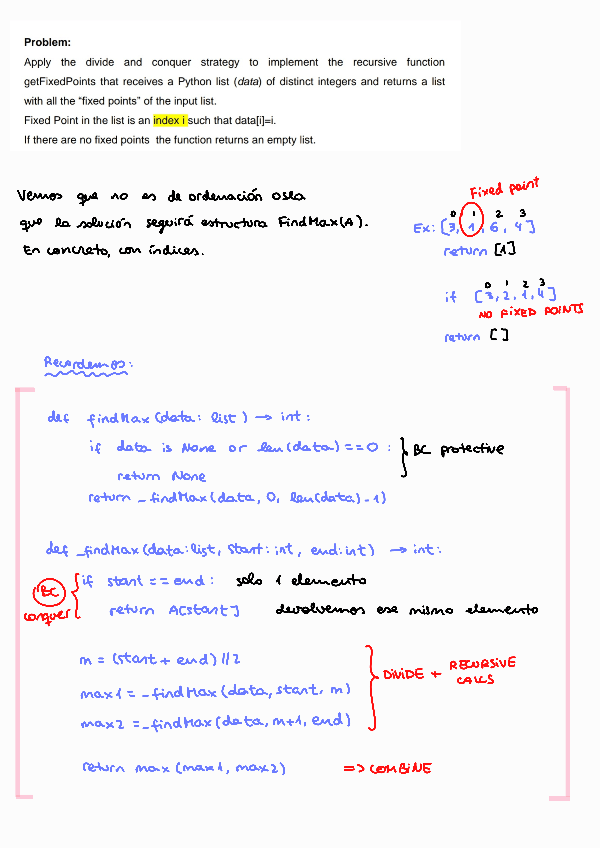 Problem:
Apply the divide and conquer strategy to implement the recursive function
getFixedPoints that receives a Python list (data) of distinct integers and returns a list
with all the “fixed points” of the input list.
Fixed Point in the list is an index i such that data[i]=i.
If there are no fixed points the function returns an empty list.
Vemos que no es de ordenación osea
que la solución seguirá estructura FindMax(A).
En concreto, con índices.
Fixed point
0 1 2 3
Ex: [3, 1, 6, 4]
return [1]
0 1 2 3
if [3, 2, 1, 4]
NO FIXED POINTS
return []
Recordemos:
def findMax (data: list) → int:
if data is None or len(data) == 0 :
BC protective
return None
return _findMax(data, 0, len(data)-1)
def _findMax(data:list, start:int, end:int) → int:
BC
conquer
if start == end: solo 1 elemento
return A[start] devolvemos ese mismo elemento
m = (start + end) // 2
max1 = _findMax(data, start, m)
max2 = _findMax(data, m+1, end)
DIVIDE + RECURSIVE
CALLS
return max (max1, max2) => COMBINE